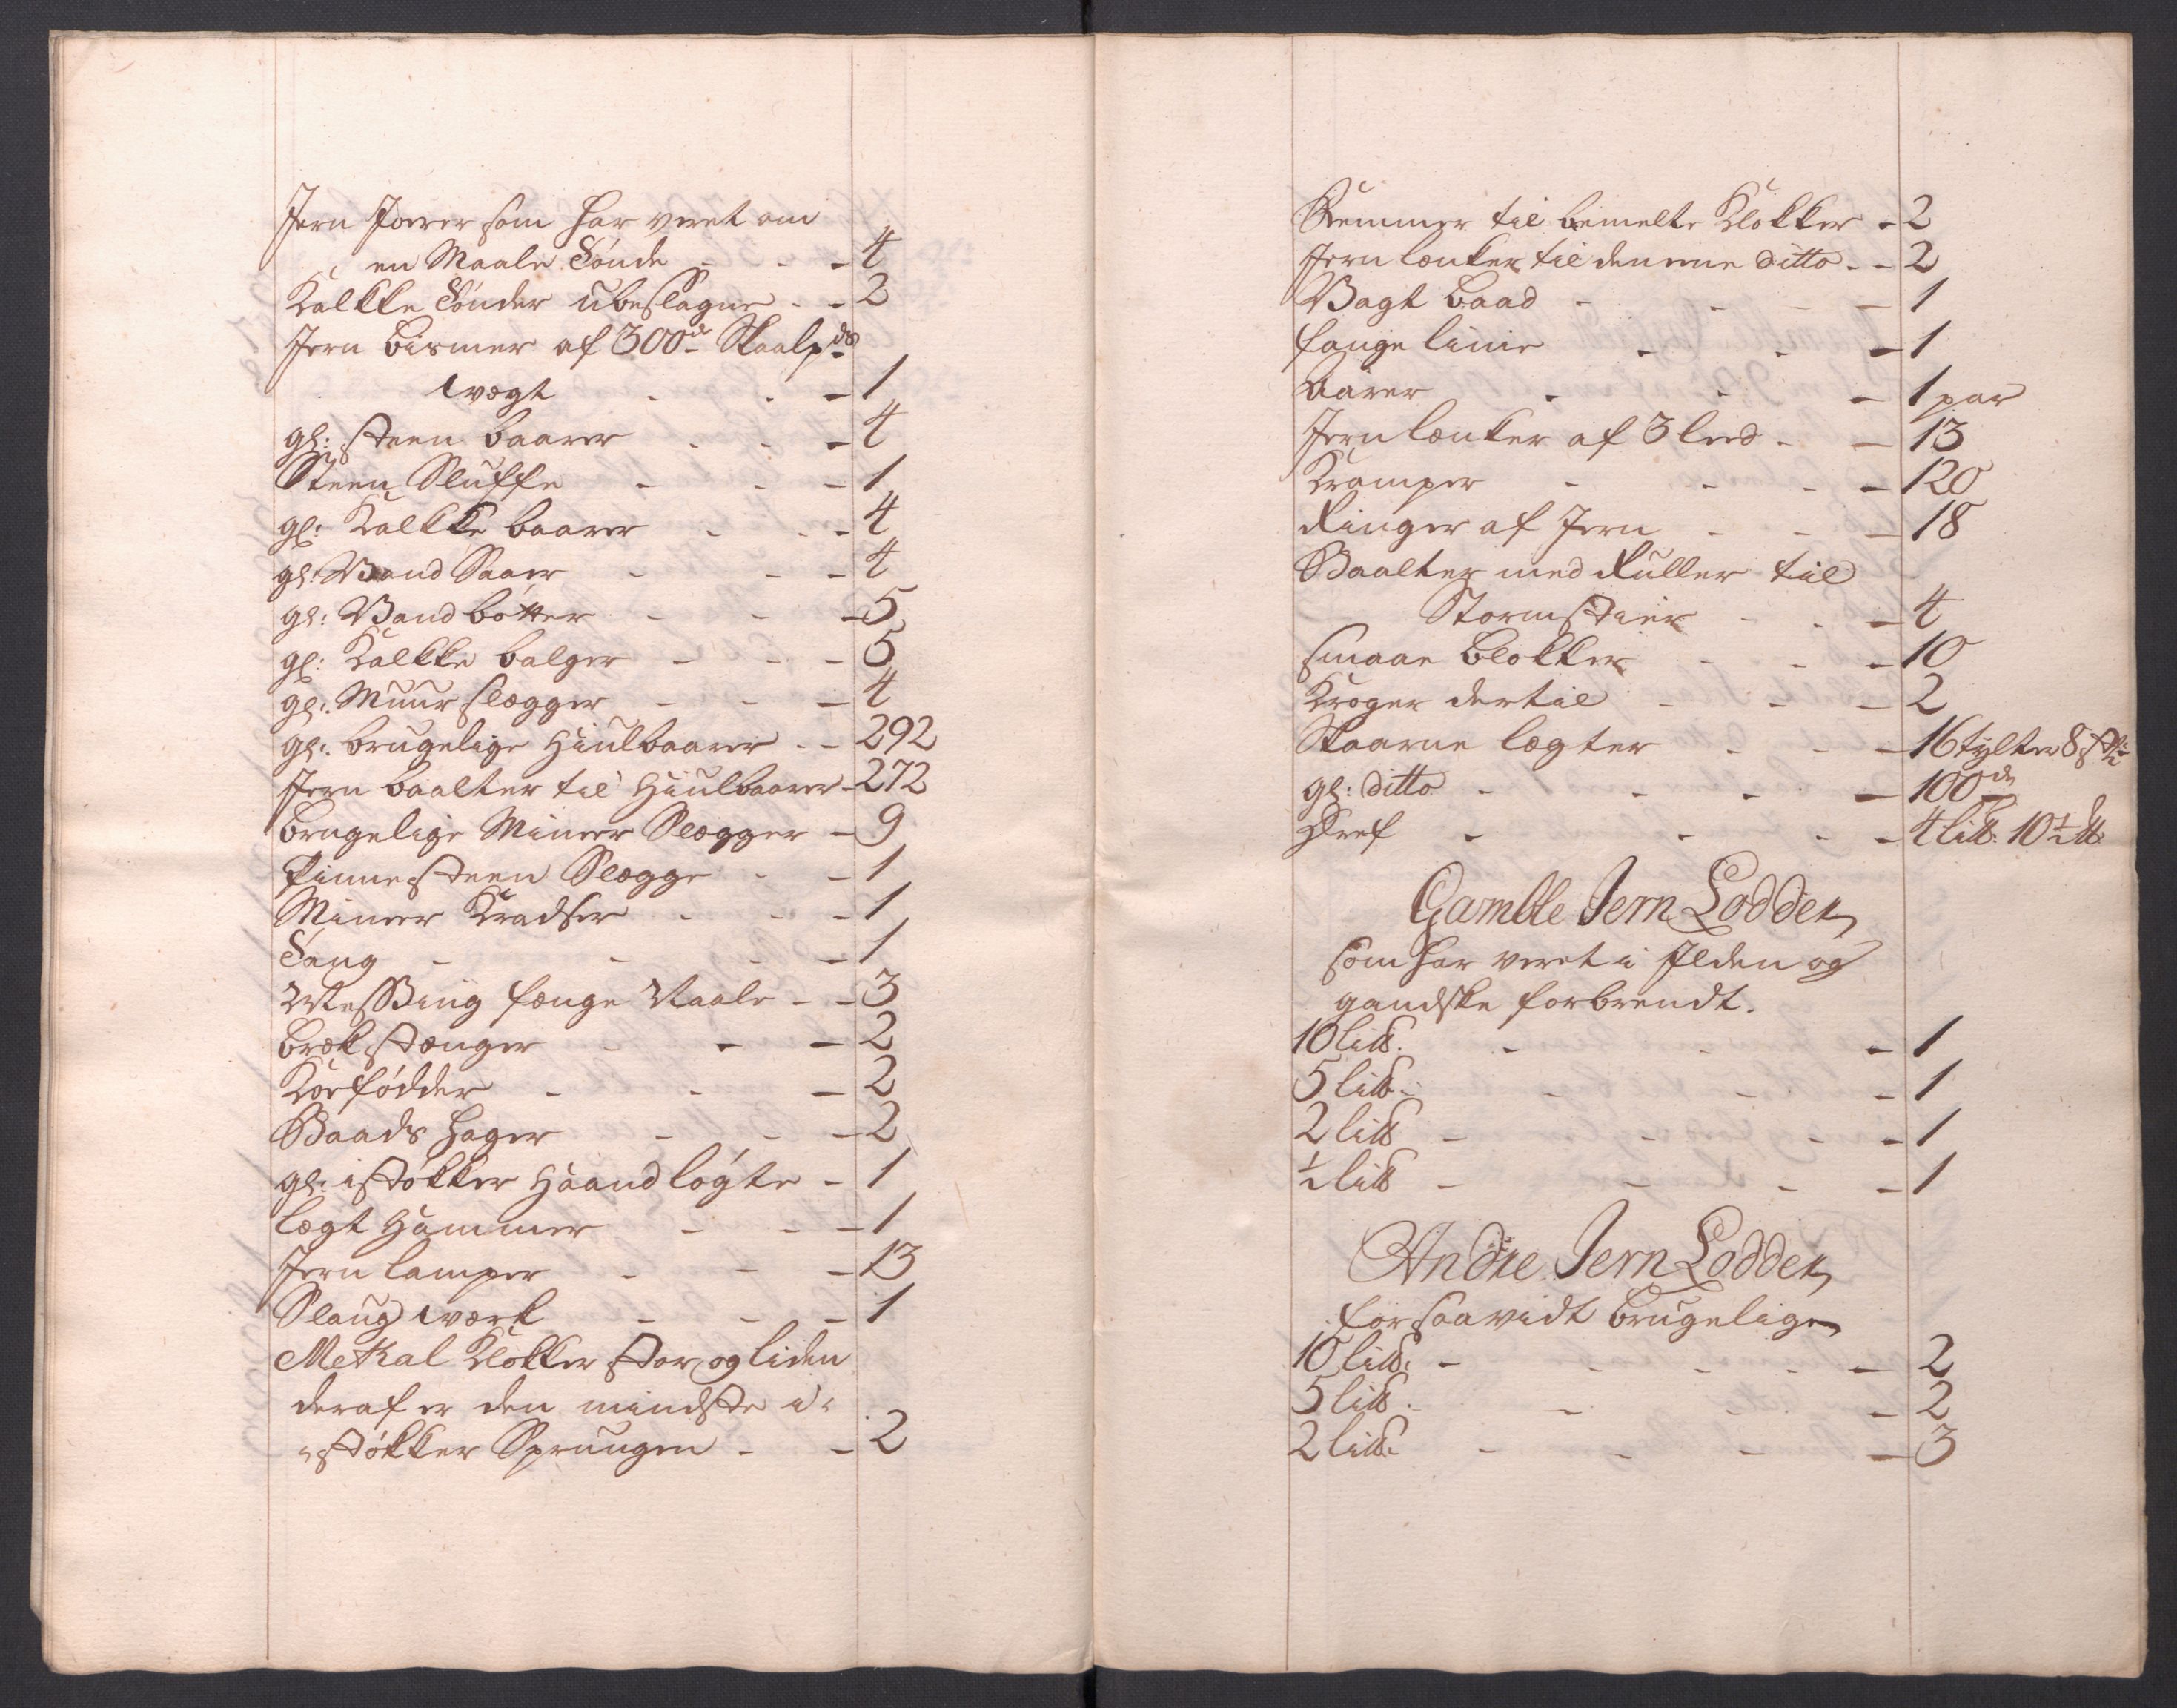 Jern Joerer som har veret om
en Maale Tønde - - - 4
Kalkke Tønder ubeslagne - - 2
Jern bismer af 300de Skaalpds
wægt - - - 1
gl: steen baarer - - - 4
Steen Sluffe - - - 1
gl: Kalkke baarer - - - 4
gl: Vand Saaer - - - 4
gl: Vand bøtter - - - 5
gl: Kalkke balger - - - 5
gl: Muur slægger - - - 4
gl: brugelige Hiulbaarer - - 292
Jern baalter til Hiulbaarer - 272
brugelige Mineer Slægger - 9
Pinnesteen Slægge - - 1
Mineer Kradser - - - 1
Tang - - - - 1
Messing fænge Naale - - 3
bræk stænger - - - 2
Koefødder - - - 2
Baads hager - - - 2
gl: istøkker Haandløgte - 1
lægt Hammer - - - 1
Jern lamper - - - 13
Slaug værk - - - 1
Metal Klokker stor og liden
deraf er den mindste i-
-støkker Sprungen - - 2
Remmer til bemelte Klokker - 2
Jern lænker til den eene ditto - - 2
Vagt baad - - - - 1
fange linie - - - 1
Aarer - - - 1 par
Jern lænker af 3 leed - - 13
Kramper - - - - 120
Ringer af Jern - - - 18
Baalter med Ruller til
Stormstier - - - 4
smaae blokker - - - 10
Kroger dertil - - - 2
Skaarne lægter - - - 16 tylter 8 st:
gl: ditto - - - - 100de
Dref - - - - 4 lit. 10½ lt.
Gamble Jern Lodder
som har veret i Ilden og
gandske forbrendt.
10 lit. - - - 1
5 lit. - - - 1
2 lit - - - - 1
½ lit - - - - 1
Andre Jern Lodder
forsaavidt brugelige
10 lit. - - - - - 2
5 lit. - - - - 2
2 lit. - - - - 3